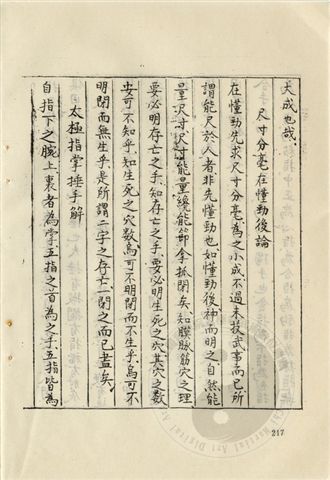 大成也哉
尺寸分毫在懂勁後論
在懂勁先求尺寸分毫為之小成不過末技武事而已所
謂能尺於人者非先懂勁也如懂勁後神而明之自然能
量尺寸尺寸能量纔能節拿抓閉矣知膜脉筋穴之理
要必明存亡之手知存亡之手要必明生死之穴其穴之數
安可不知乎知生死之穴數烏可不明閉而不生乎烏可不
明閉而無生乎是所謂二字之存亡一閉之而已盡矣
太極指掌捶手解
自指下之腕上裏者為掌五指之首為之手五指皆為
217